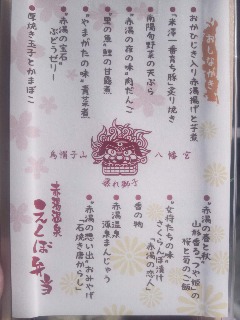 おしながき
おかひじき入り赤湯揚げと子煮
"米澤一番育ち豚"炙り焼き
南陽旬野菜の天ぷら
"赤湯の夜の味"肉だんご
"里の魚"鯉の甘露煮
"やまがたの味"青菜煮
"赤湯の宝石"
ぶどうゼリー
厚焼き玉子とかまぼこ
烏帽子山 八幡宮
"赤湯の春と秋"
桜と菊のご飯
"女将たちの味"
さくらんぼ漬け
"赤湯の恋人"
香の物
赤湯温泉
源泉まんじゅう
"赤湯の想い出"おみやげ
「石焼き唐がらし」
赤湯温泉
えくぼ弁当